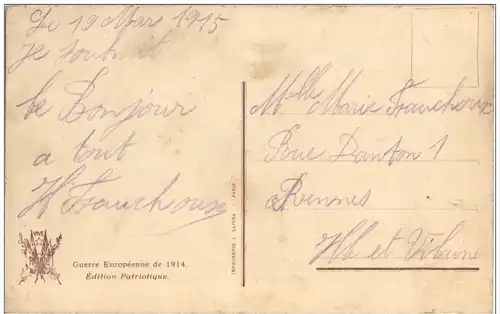 Le 19 Mars 1915
Je souhait
le Bonjour
a tout
H Franchoux
Guerre Européenne de 1914.
Édition Patriotique.
IMPRIMERIE I. LAPINA - PARIS
Mlle Marie Franchoux
Rue Danton 1
a Rennes
Ill et Vilaine